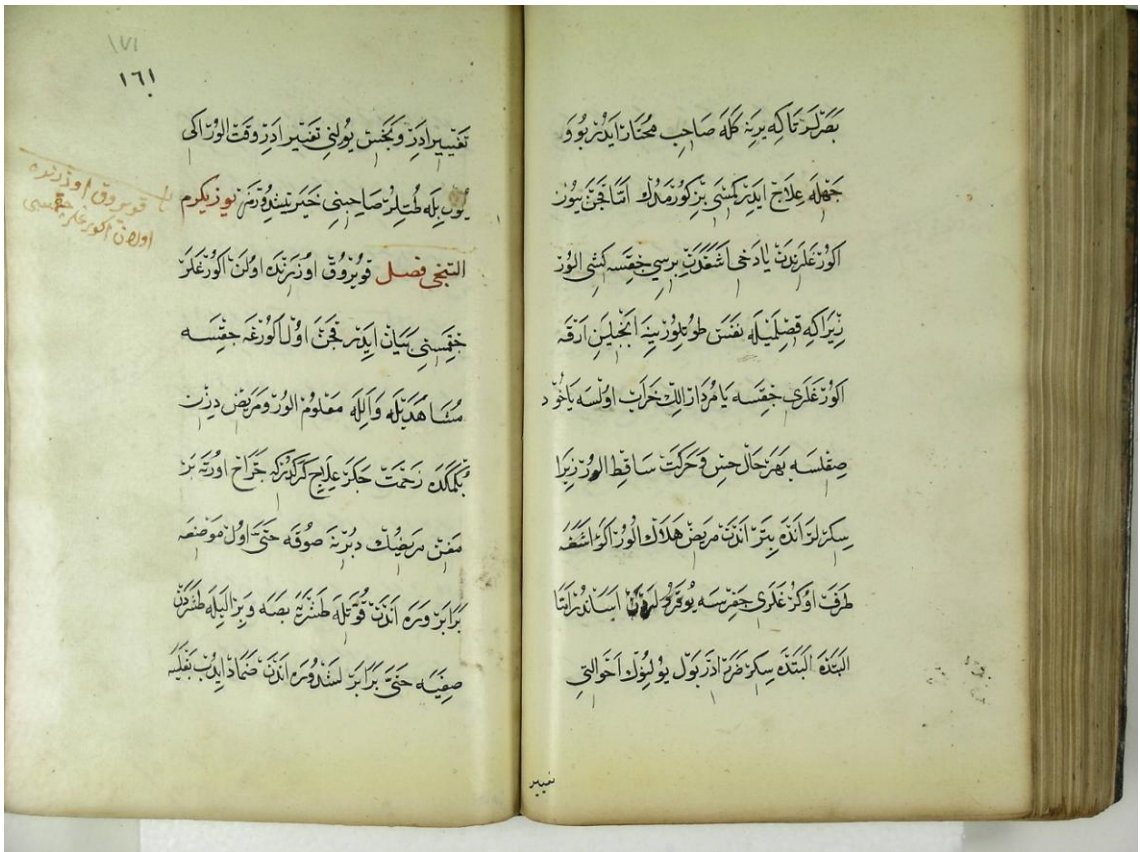 بَصَرْلَرْ تَا كِه يِرِنَه كَلَه صَاحِبِ مُخْتَارْ ايدُرْ بُو وَ
جَهْلَه عِلَاجْ ايدَنْ كِمْسَيِ بِزْ كُورْمَدُكْ اَمَّا قَچَنْ بيُونْ
اكُوزْغَلَرِندَنْ يَا دَخِى اَشَغَدَنْ بِرِسِى چِقْسَه كِشِى الُورْ
زِيرَا كِه قِصِلْمَيلَه نَفَسْ طُوتِلُورْ يِنَه اَنْجِلَيِنْ اَرْقَه
اكُوزْغَلَرِى چِقْسَه يَا مُرْدَارْ اِلِكْ خَرَابْ اولْسَه يَاخُودْ
صِقِلْسَه بَهَرْ حَالْ حِسْ وَ حَرَكَتْ سَاقِطْ الُورْ زِيرَا
سِكِرْلَرْ اَنْدَه بِتَرْ اَنْدَنْ مَرِيضْ هَلَاكْ الُورْ اكَرْ اَشَغَه
طَرَفْ اوكُرْغَلَرِى چِقَرْسَه يُوقَرُولَرْدَنْ اَسَانْدُرْ اَمَّا
اَلْبَتَّه اَلْبَتَّه سِكِرْ ضَرَرْ ايدَرْ بَوْلْ يُولِنُوكْ اَحْوَالِنِى
تغيير
١٧١
١٦١
تَغْيِيرْ ايدَرْ وَ نَجِسْ يُولِنِى تَغْيِيرْ ايدَرْ وَقْتْ الُورْ اكِى
يُولْ بِلَه طُتِلُرْ صَاحِبِنِى خَبَرْ يتشدُرَمَزْ يوز يكرم
التنجى فصل قُويْرُوقْ اوزَرِنْدَه اولَنْ اكُوزْغَلَرْ
چِقْمَسِنِى بَيَانْ ايدَرْ قَچَنْ اولْ اكُورْغَه چِقْسَه
مُشَاهَدَيْلَه وَ اَلِلَه مَعْلُومْ الُورْ وَ مَرِيضْ دِزِنْ
بُكْمَكْدَه زَحْمَتْ چَكَرْ عِلَاجِ كَرَكْدُرْ كِه جَرَّاحْ اورْتَه بَرْ
مَغِنْ مَرِيضُكْ دُبُرِنَه صُوقَه حَتَّى اولْ مَوْضِعَه
بَرَابَرْ وَرَه اَنْدَنْ قُوَّتْلَه طَشْرَه بَصَه وَ بِرْ اَلِيلَه طَشْرَدَنْ
صِغَيَه حَتَّى بَرَابَرْ لَشْدُورَه اَنْدَنْ ضَمَادْ ايدُبْ بَغْلَيَه
قويروق اوزرنده
اولان اكورغلر چقمسى